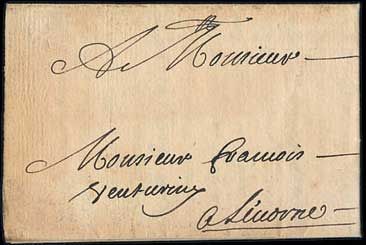 A Monsieur
Monsieur Francois
Venturiny
a Livorne